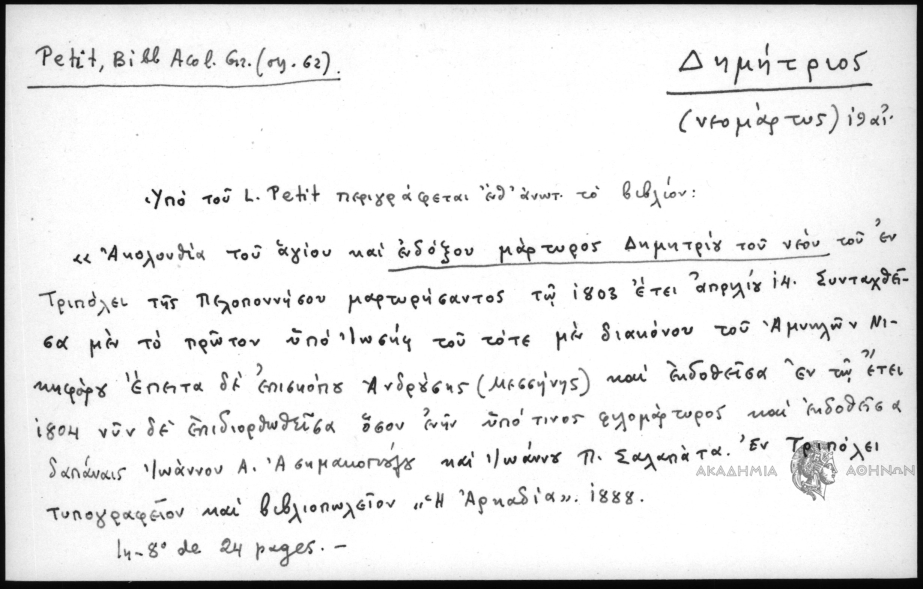 Petit, Bibl Acol. Gr. (σγ. 62).
Δημήτριος
(νεομάρτυς) ιθ' αἰ.
Ὑπό τοῦ L. Petit περιγράφεται ἐνθ' ἀνωτ. τό βιβλίον:
«Ἀκολουθία τοῦ ἁγίου καί ἐνδόξου μάρτυρος Δημητρίου τοῦ νέου τοῦ ἐν
Τριπόλει τῆς Πελοποννήσου μαρτυρήσαντος τῷ 1803 ἔτει ἀπριλίου 14. Συνταχθεῖ-
σα μέν τό πρῶτον ὑπό Ἰωσήφ τοῦ τότε μέν διακόνου τοῦ Ἀμυκλῶν Νι-
κηφόρου ἔπειτα δέ ἐπισκόπου Ἀνδρούσης (Μεσσήνης) καί ἐκδοθεῖσα ἐν τῷ ἔτει
1804 νῦν δέ ἐπιδιορθωθεῖσα ὅσον ἐνῆν ὑπό τινος φιλομάρτυρος καί ἐκδοθεῖσα
δαπάναις Ἰωάννου Α. Ἀσημακοπούλου καί Ἰωάννου Π. Σαλαπάτα. Ἐν Τριπόλει
τυπογραφεῖον καί βιβλιοπωλεῖον „Ἡ Ἀρκαδία». 1888.
In-8° de 24 pages. –
ΑΚΑΔΗΜΙΑ ΑΘΗΝΩΝ